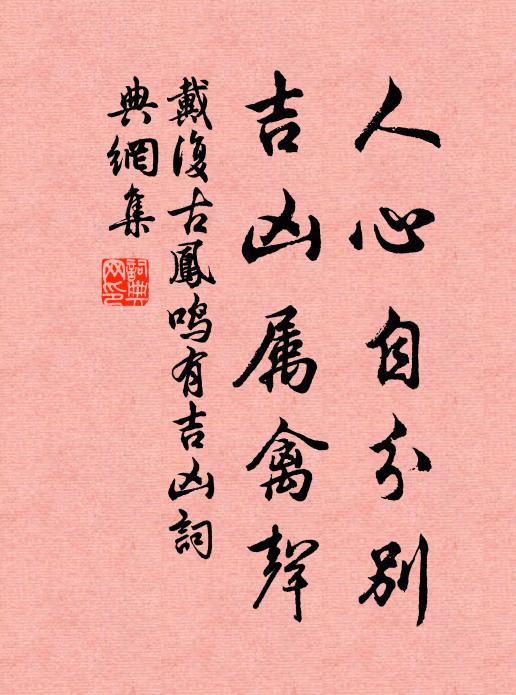 人心自分别
吉凶属禽聲
戴復古鳳鸣有吉凶詞
典網集
詞典网印